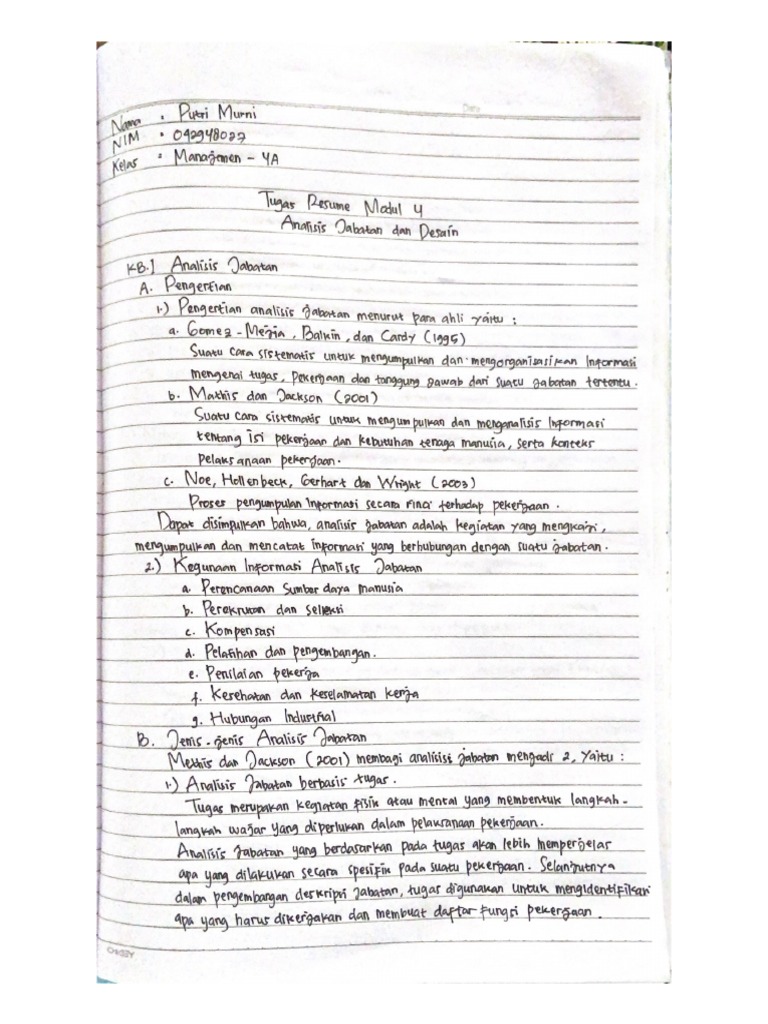 Date
Nama : Putri Murni
NIM : 042948027
Kelas : Manajemen - 4A
Tugas Resume Modul 4
Analisis Jabatan dan Desain
KB.1 Analisis Jabatan
A. Pengertian
1.) Pengertian analisis jabatan menurut para ahli yaitu :
a. Gomez - Mejia, Balkin, dan Cardy (1995)
Suatu cara sistematis untuk mengumpulkan dan mengorganisasikan Informasi
mengenai tugas, pekerjaan dan tanggung jawab dari suatu jabatan tertentu.
b. Mathis dan Jackson (2001)
Suatu cara sistematis untuk mengumpulkan dan menganalisis Informasi
tentang isi pekerjaan dan kebutuhan tenaga manusia, serta konteks
pelaksanaan pekerjaan.
c. Noe, Hollenbeck, Gerhart dan Wright (2003)
Proses pengumpulan Informasi secara rinci terhadap pekerjaan.
Dapat disimpulkan bahwa, analisis jabatan adalah kegiatan yang mengkaji,
mengumpulkan dan mencatat informasi yang berhubungan dengan suatu jabatan.
2.) Kegunaan Informasi Analisis Jabatan
a. Perencanaan Sumber daya manusia
b. Perekrutan dan seleksi
c. Kompensasi
d. Pelatihan dan pengembangan.
e. Penilaian pekerja
f. Kesehatan dan keselamatan kerja
g. Hubungan Industrial
B. Jenis-jenis Analisis Jabatan
Methis dan Jackson (2001) membagi analisisi jabatan mengadi 2, Yaitu :
1.) Analisis Jabatan berbasis tugas.
Tugas merupakan kegiatan fisik atau mental yang membentuk langkah-
langkah wajar yang diperlukan dalam pelaksanaan pekerjaan.
Analisis jabatan yang berdasarkan pada tugas akan lebih memperjelas
apa yang dilakukan secara spesifik pada suatu pekerjaan. Selanjutnya
dalam pengembangan deskripsi jabatan, tugas digunakan untuk mengidentifikasi
apa yang harus dikerjakan dan membuat daftar fungsi pekerjaan.